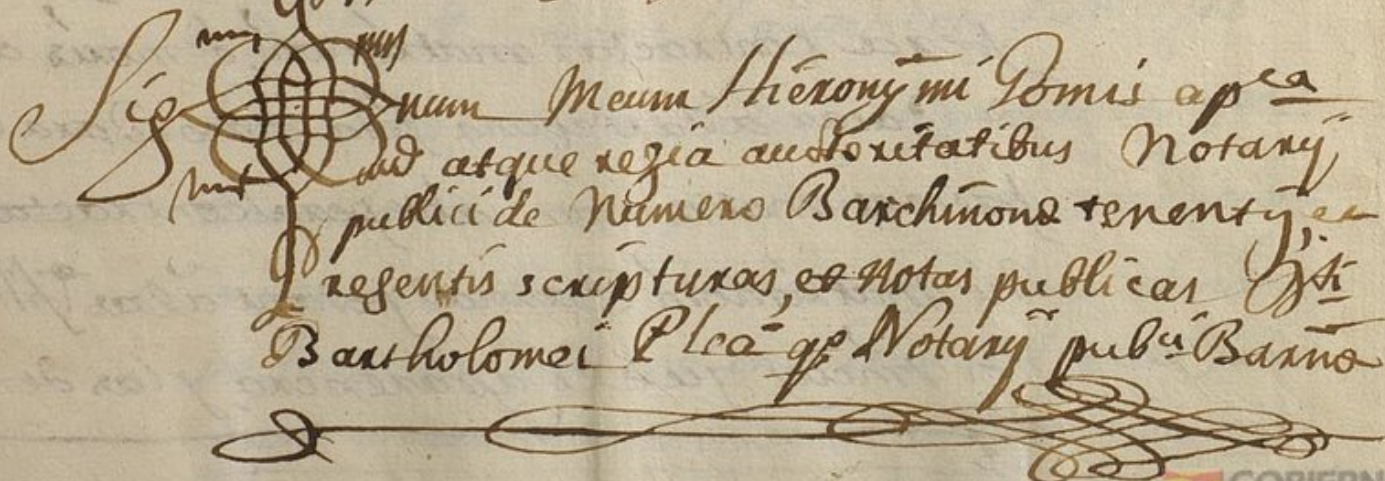 Sig num Meum Hieronymi Gomis ap^ca
atque regia auctoritatibus Notarij
publici de Numero Barchinonæ tenentis, et
regentis scripturas, et Notas publicas
Bartholomei Plea q^o Notarij pub^ci Barnæ
GOBIERN